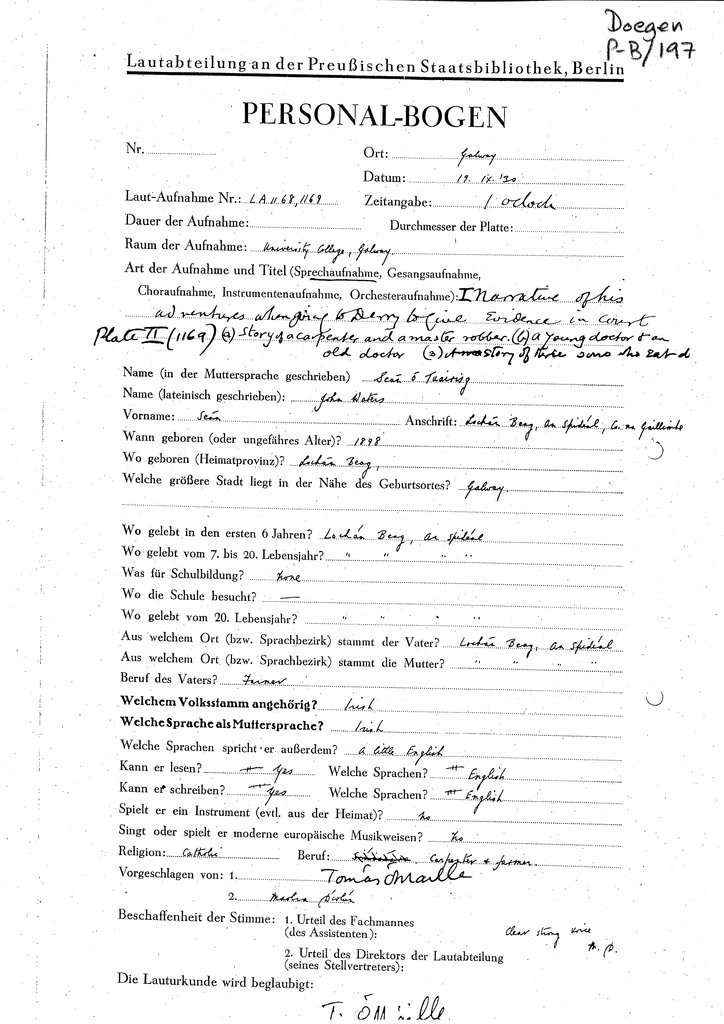 Doegen
P-B/197
Lautabteilung an der Preußischen Staatsbibliothek, Berlin
PERSONAL-BOGEN
Nr.
Ort: Galway
Datum: 19. IX. '30
Laut-Aufnahme Nr.: LA 1168, 1169
Zeitangabe: 1 oclock
Dauer der Aufnahme:
Durchmesser der Platte:
Raum der Aufnahme: University College, Galway.
Art der Aufnahme und Titel (Sprechaufnahme, Gesangsaufnahme,
Choraufnahme, Instrumentenaufnahme, Orchesteraufnahme): I Narrative of his
adventures when going to Derry to Give Evidence in court
Plate II (1169) (a) Story of a carpenter and a master robber. (b) A young doctor & an
old doctor (3) story of three sons who
Name (in der Muttersprache geschrieben) Seán ó Tuairisg
Name (lateinisch geschrieben): John Waters
Vorname: Seán
Anschrift: Lochán Beag, an Spidéal, Co. na Gaillimhe
Wann geboren (oder ungefähres Alter)? 1898
Wo geboren (Heimatprovinz)? Lochán Beag,
Welche größere Stadt liegt in der Nähe des Geburtsortes? Galway.
Wo gelebt in den ersten 6 Jahren? Lochán Beag, an Spidéal
Wo gelebt vom 7. bis 20. Lebensjahr? " " " "
Was für Schulbildung? None
Wo die Schule besucht? —
Wo gelebt vom 20. Lebensjahr? " " " "
Aus welchem Ort (bzw. Sprachbezirk) stammt der Vater? Lochán Beag, an Spidéal
Aus welchem Ort (bzw. Sprachbezirk) stammt die Mutter? " " " "
Beruf des Vaters? Farmer
Welchem Volksstamm angehörig? Irish
Welche Sprache als Muttersprache? Irish
Welche Sprachen spricht er außerdem? A little English
Kann er lesen? Yes Welche Sprachen? English
Kann er schreiben? Yes Welche Sprachen? English
Spielt er ein Instrument (evtl. aus der Heimat)? No
Singt oder spielt er moderne europäische Musikweisen? No
Religion: Catholic Beruf: Carpenter & farmer.
Vorgeschlagen von: 1. Tomás Ó Máille
2.
Beschaffenheit der Stimme: 1. Urteil des Fachmannes
(des Assistenten): Clear strong voice
2. Urteil des Direktors der Lautabteilung
(seines Stellvertreters):
Die Lauturkunde wird beglaubigt:
T. Ó Máille